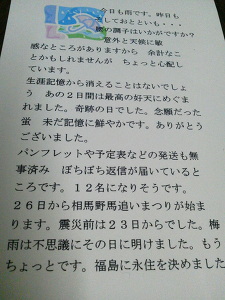 今日も雨です。昨日も
しておとといも・・・
の調子はいかがですか？
意外と天候に敏
感なところがありますから　余計なこ
とかもしれませんが　ちょっと心配し
ています。
生涯記憶から消えることはないでしょ
う　あの２日間は最高の好天にめぐま
れました。奇跡の日でした。念願だった
蛍　未だ記憶に鮮やかです。ありがとう
ございました。
パンフレットや予定表などの発送も無
事済み　ぼちぼち返信が届いていると
ころです。１２名になりそうです。
２６日から相馬野馬追いまつりが始ま
ります。震災前は２３日からでした。梅
雨は不思議にその日に明けました。もう
ちょっとです。福島に永住を決めました